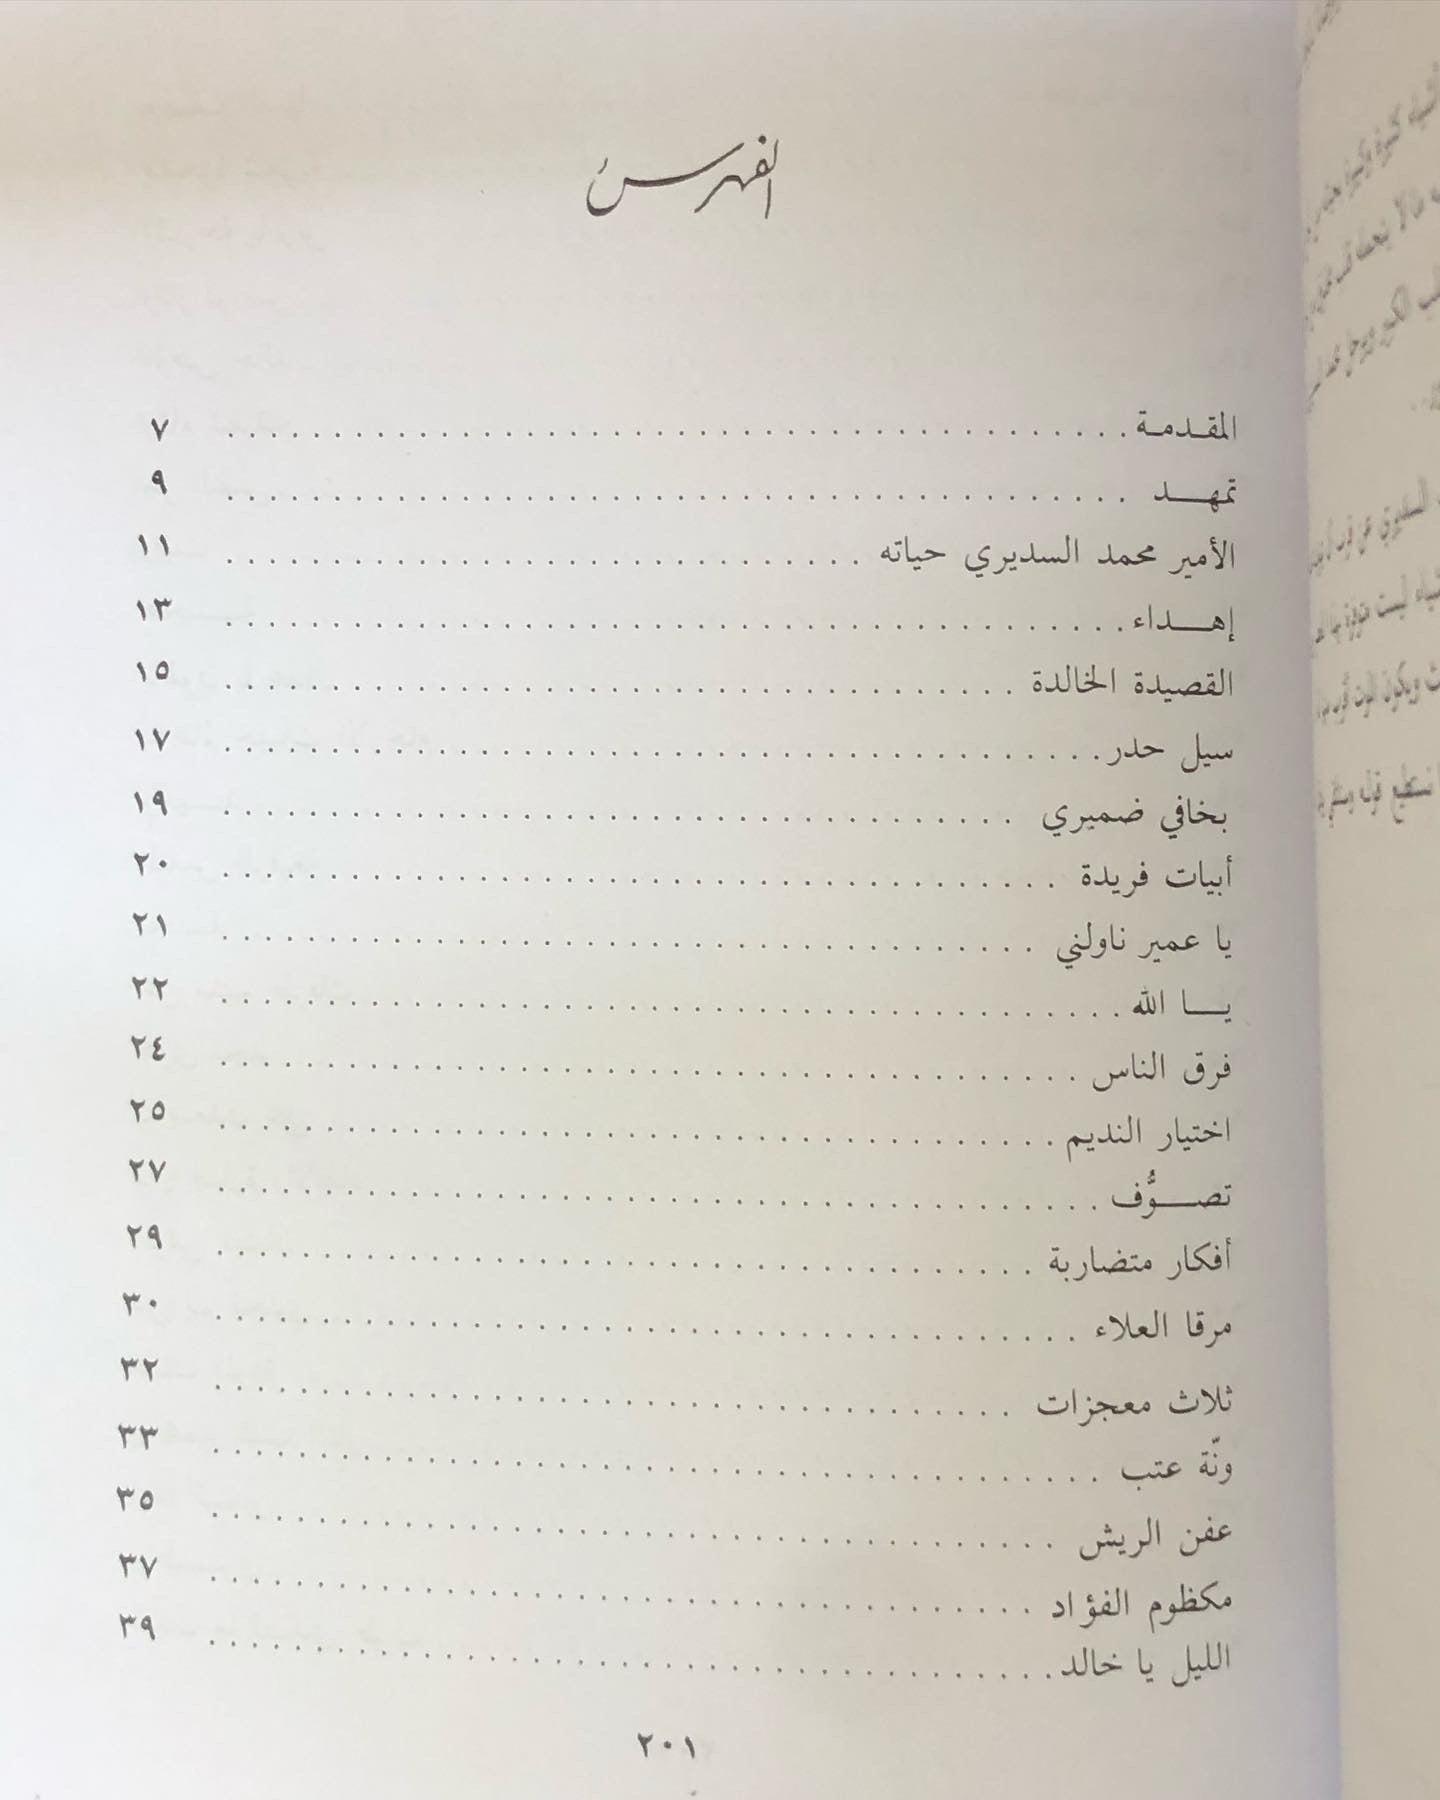 الفهرس
المقدمة ........ ٧
تمهـــد ........ ٩
الأمير محمد السديري حياته ........ ١١
إهـــداء ........ ١٣
القصيدة الخالدة ........ ١٥
سيل حدر ........ ١٧
بخافي ضميري ........ ١٩
أبيات فريدة ........ ٢٠
يا عمير ناولني ........ ٢١
يـــا الله ........ ٢٢
فرق الناس ........ ٢٤
اختيار النديم ........ ٢٥
تصـــوُّف ........ ٢٧
أفكار متضاربة ........ ٢٩
مرقا العلاء ........ ٣٠
ثلاث معجزات ........ ٣٢
ونّة عتب ........ ٣٣
عفن الريش ........ ٣٥
مكظوم الفؤاد ........ ٣٧
الليل يا خالد ........ ٣٩
٢٠١